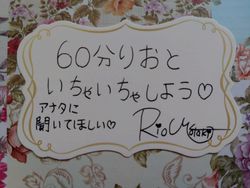 60分りおと
いちゃいちゃしよう♡
アナタに
聞いてほしい♡